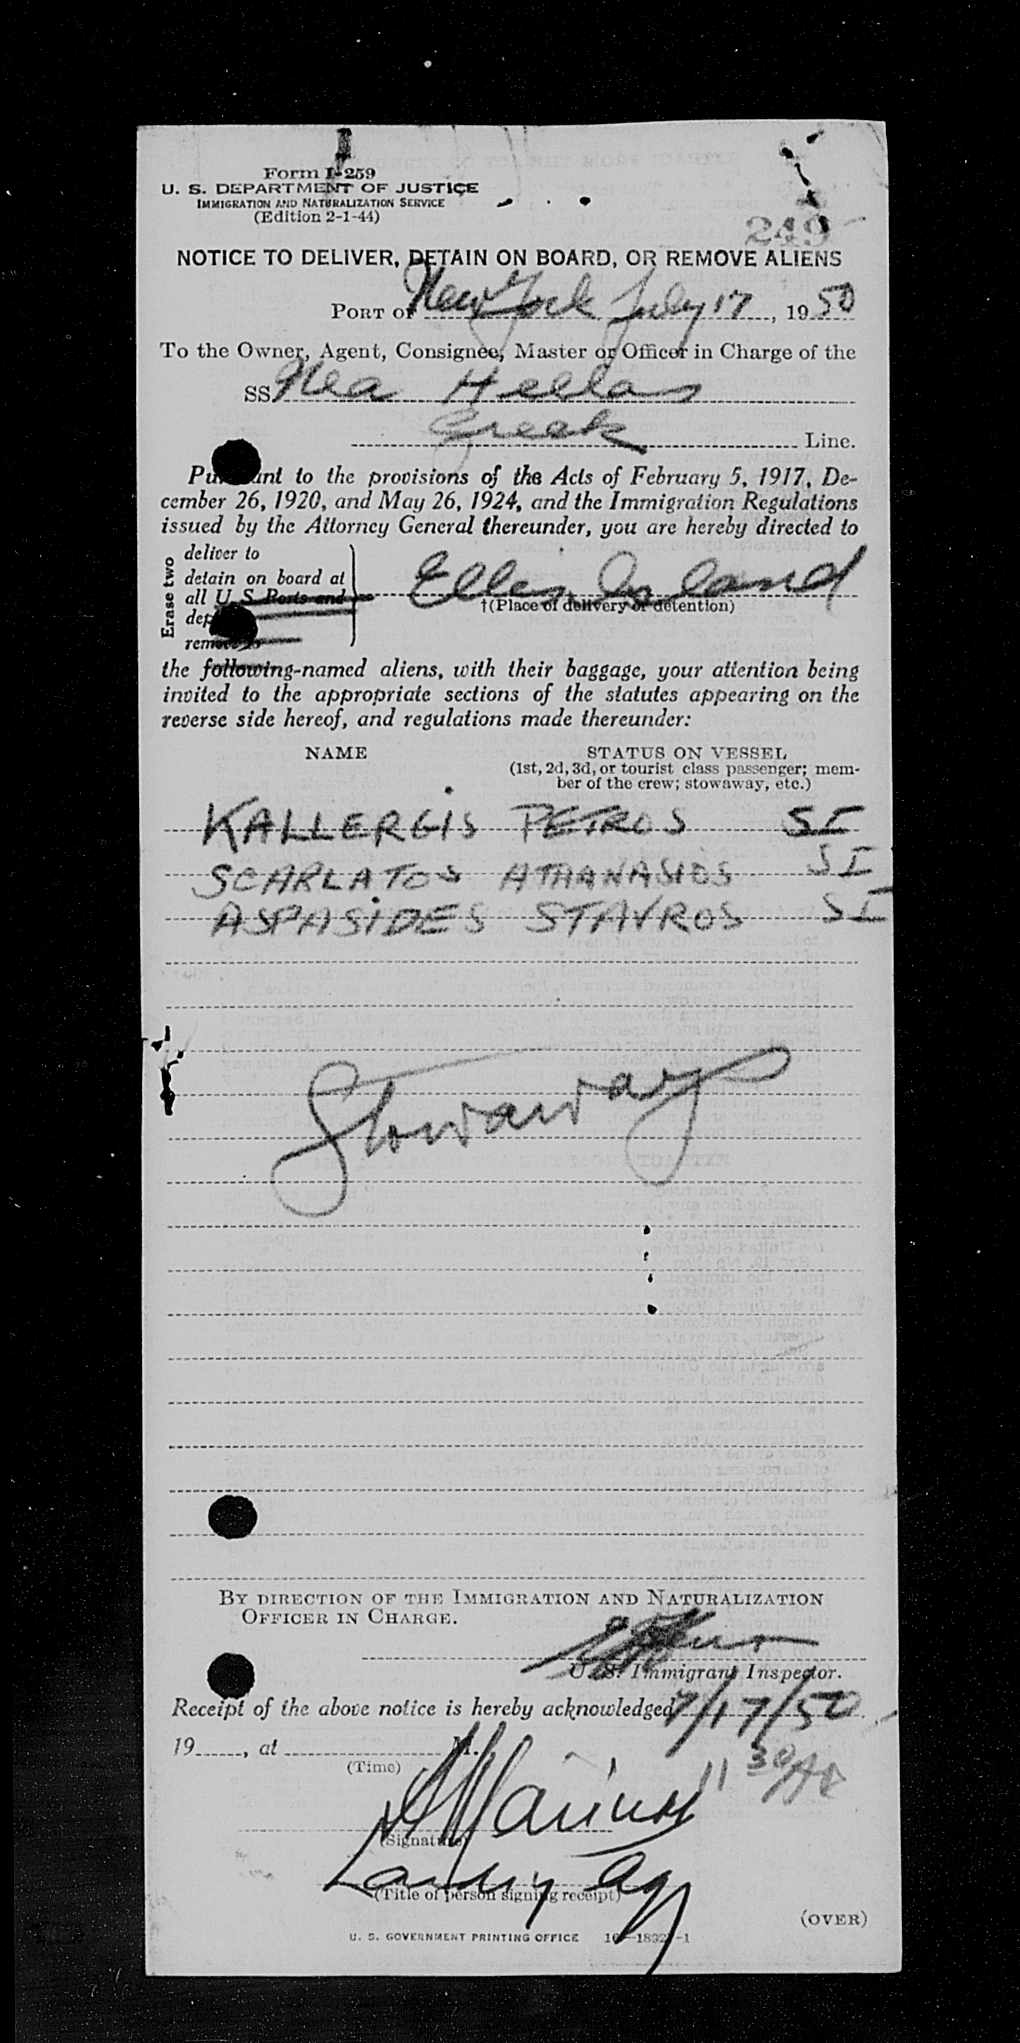 Form I-259
U. S. DEPARTMENT OF JUSTICE
IMMIGRATION AND NATURALIZATION SERVICE
(Edition 2-1-44)
249
NOTICE TO DELIVER, DETAIN ON BOARD, OR REMOVE ALIENS
PORT OF New York July 17, 1950
To the Owner, Agent, Consignee, Master or Officer in Charge of the
SS Nea Hellas
Greek Line.
Pursuant to the provisions of the Acts of February 5, 1917, De-
cember 26, 1920, and May 26, 1924, and the Immigration Regulations
issued by the Attorney General thereunder, you are hereby directed to
Erase two
deliver to
detain on board at
all U. S. Ports and
remove to
Ellis Island
†(Place of delivery or detention)
the following-named aliens, with their baggage, your attention being
invited to the appropriate sections of the statutes appearing on the
reverse side hereof, and regulations made thereunder:
NAME STATUS ON VESSEL
(1st, 2d, 3d, or tourist class passenger; mem-
ber of the crew; stowaway, etc.)
KALLERGIS PETROS SI
SCARLATOS ATHANASIOS SI
ASPASIDES STAVROS SI
Stowaways
BY DIRECTION OF THE IMMIGRATION AND NATURALIZATION
OFFICER IN CHARGE.
U. S. Immigrant Inspector.
Receipt of the above notice is hereby acknowledged 7/17/50
19____, at ____ M.
(Time)
11 30
(Signature)
(Title of person signing receipt)
(OVER)
U. S. GOVERNMENT PRINTING OFFICE